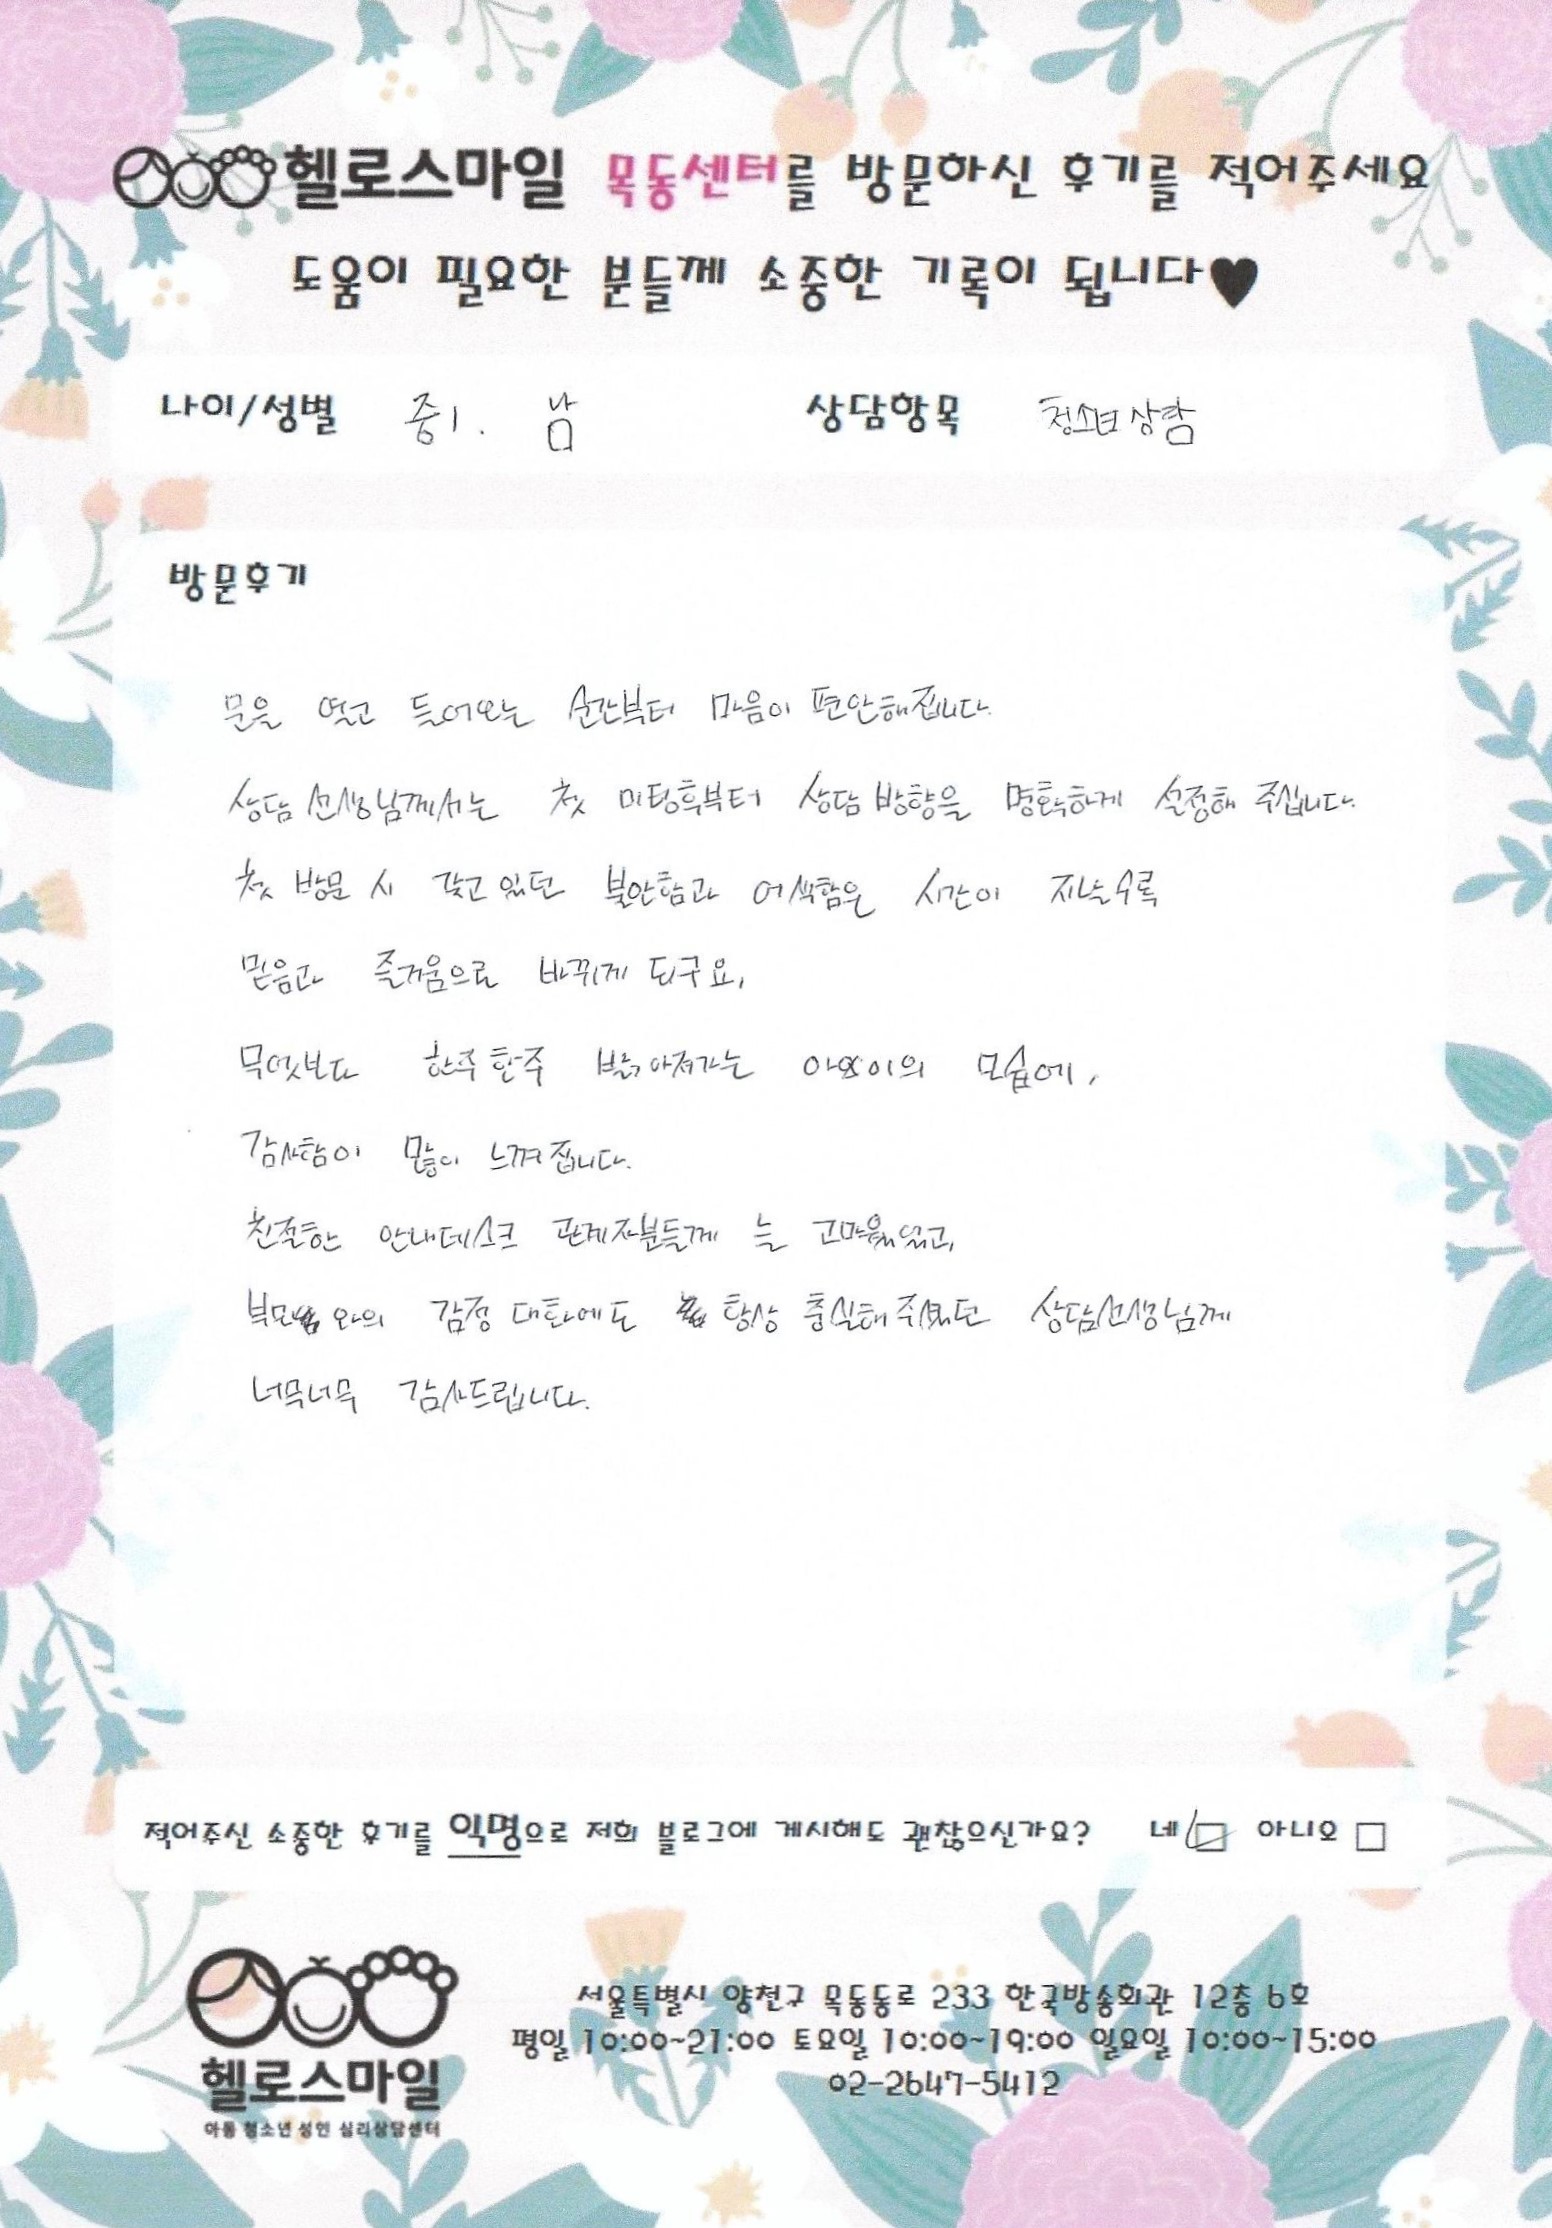 헬로스마일 목동센터를 방문하신 후기를 적어주세요
도움이 필요한 분들께 소중한 기록이 됩니다♥
나이/성별 중1. 남 상담항목 청소년 상담
방문후기
문을 열고 들어오는 순간부터 마음이 편안해집니다.
상담 선생님께서는 첫 미팅후부터 상담 방향을 명확하게 설정해 주십니다.
첫 방문 시 갖고 있던 불안함과 어색함은 시간이 지날수록
믿음과 즐거움으로 바뀌게 되구요,
무엇보다 한주 한주 밝아져가는 아이의 모습에,
감사함이 많이 느껴집니다.
친절한 안내데스크 관계자분들께 늘 고마웠었고,
부모와의 감정 대화에도 항상 충실해 주셨던 상담선생님께
너무너무 감사드립니다.
적어주신 소중한 후기를 익명으로 저희 블로그에 게시해도 괜찮으신가요? 네 ☑ 아니오 □
서울특별시 양천구 목동동로 233 한국방송회관 12층 6호
평일 10:00~21:00 토요일 10:00~19:00 일요일 10:00~15:00
02-2647-5412
헬로스마일
아동 청소년 성인 심리상담센터